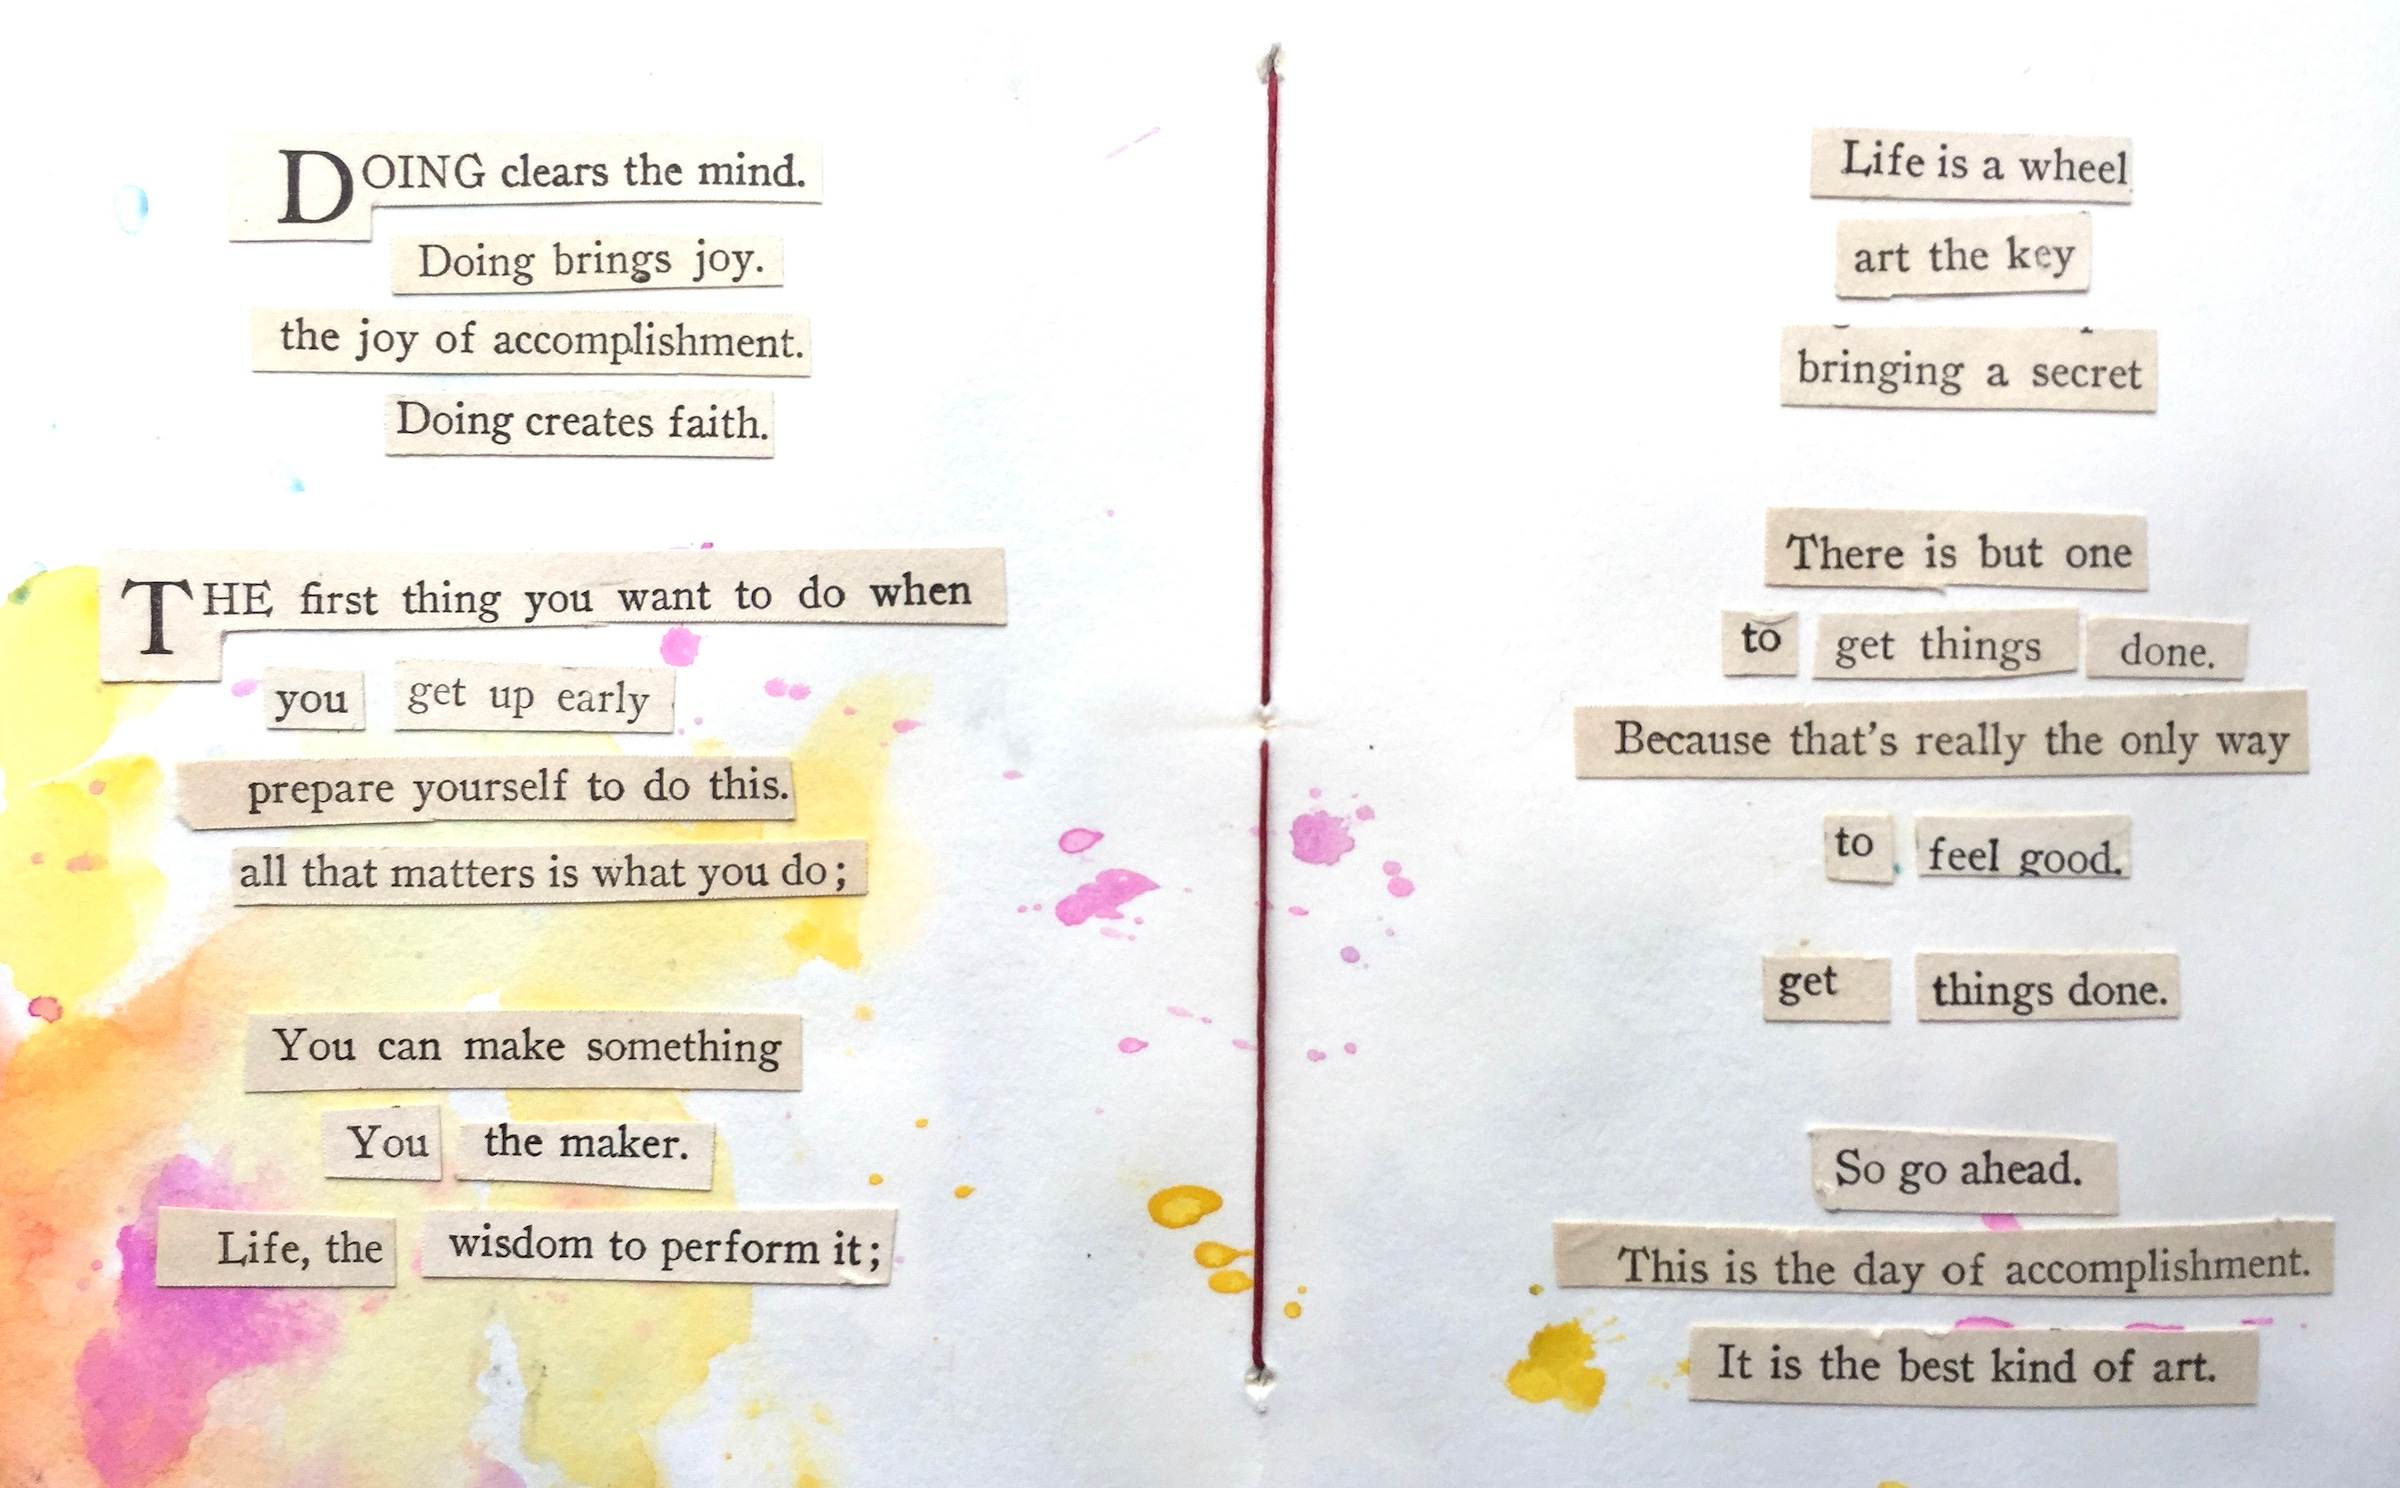 DOING clears the mind.
Doing brings joy.
the joy of accomplishment.
Doing creates faith.
THE first thing you want to do when
you get up early
prepare yourself to do this.
all that matters is what you do;
You can make something
You the maker.
Life, the wisdom to perform it;
Life is a wheel
art the key
bringing a secret
There is but one
to get things done.
Because that's really the only way
to feel good.
get things done.
So go ahead.
This is the day of accomplishment.
It is the best kind of art.